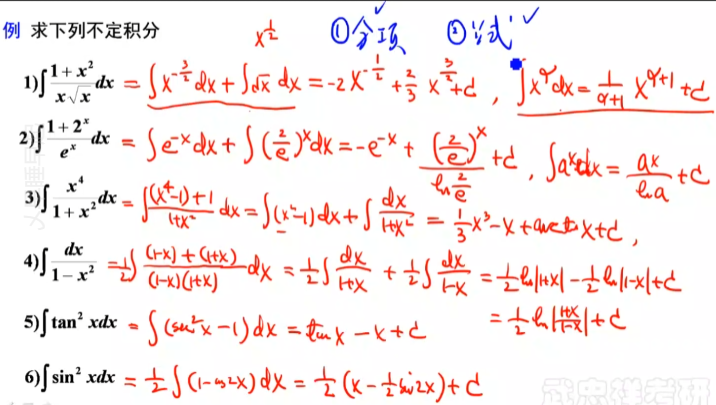 例 求下列不定积分 x^{1/2} ①分项 ②公式 ✓ ✓
1) ∫ (1+x²)/(x√x) dx = ∫x^{-3/2} dx + ∫√x dx = -2x^{-1/2} + 2/3 x^{3/2} + C , ∫x^α dx = 1/(α+1) x^{α+1} + C
2) ∫ (1+2^x)/e^x dx = ∫e^{-x} dx + ∫(2/e)^x dx = -e^{-x} + (2/e)^x/(ln 2/e) + C , ∫a^x dx = a^x/(ln a) + C
3) ∫ x⁴/(1+x²) dx = ∫ ((x⁴-1)+1)/(1+x²) dx = ∫(x²-1) dx + ∫ dx/(1+x²) = 1/3 x³ - x + arctan x + C ,
4) ∫ dx/(1-x²) = 1/2 ∫ ((1-x)+(1+x))/((1-x)(1+x)) dx = 1/2 ∫ dx/(1+x) + 1/2 ∫ dx/(1-x) = 1/2 ln|1+x| - 1/2 ln|1-x| + C
= 1/2 ln|(1+x)/(1-x)| + C
5) ∫ tan² x dx = ∫(sec²x - 1) dx = tan x - x + C
6) ∫ sin² x dx = 1/2 ∫(1-cos2x) dx = 1/2 (x - 1/2 sin2x) + C
武忠祥考研